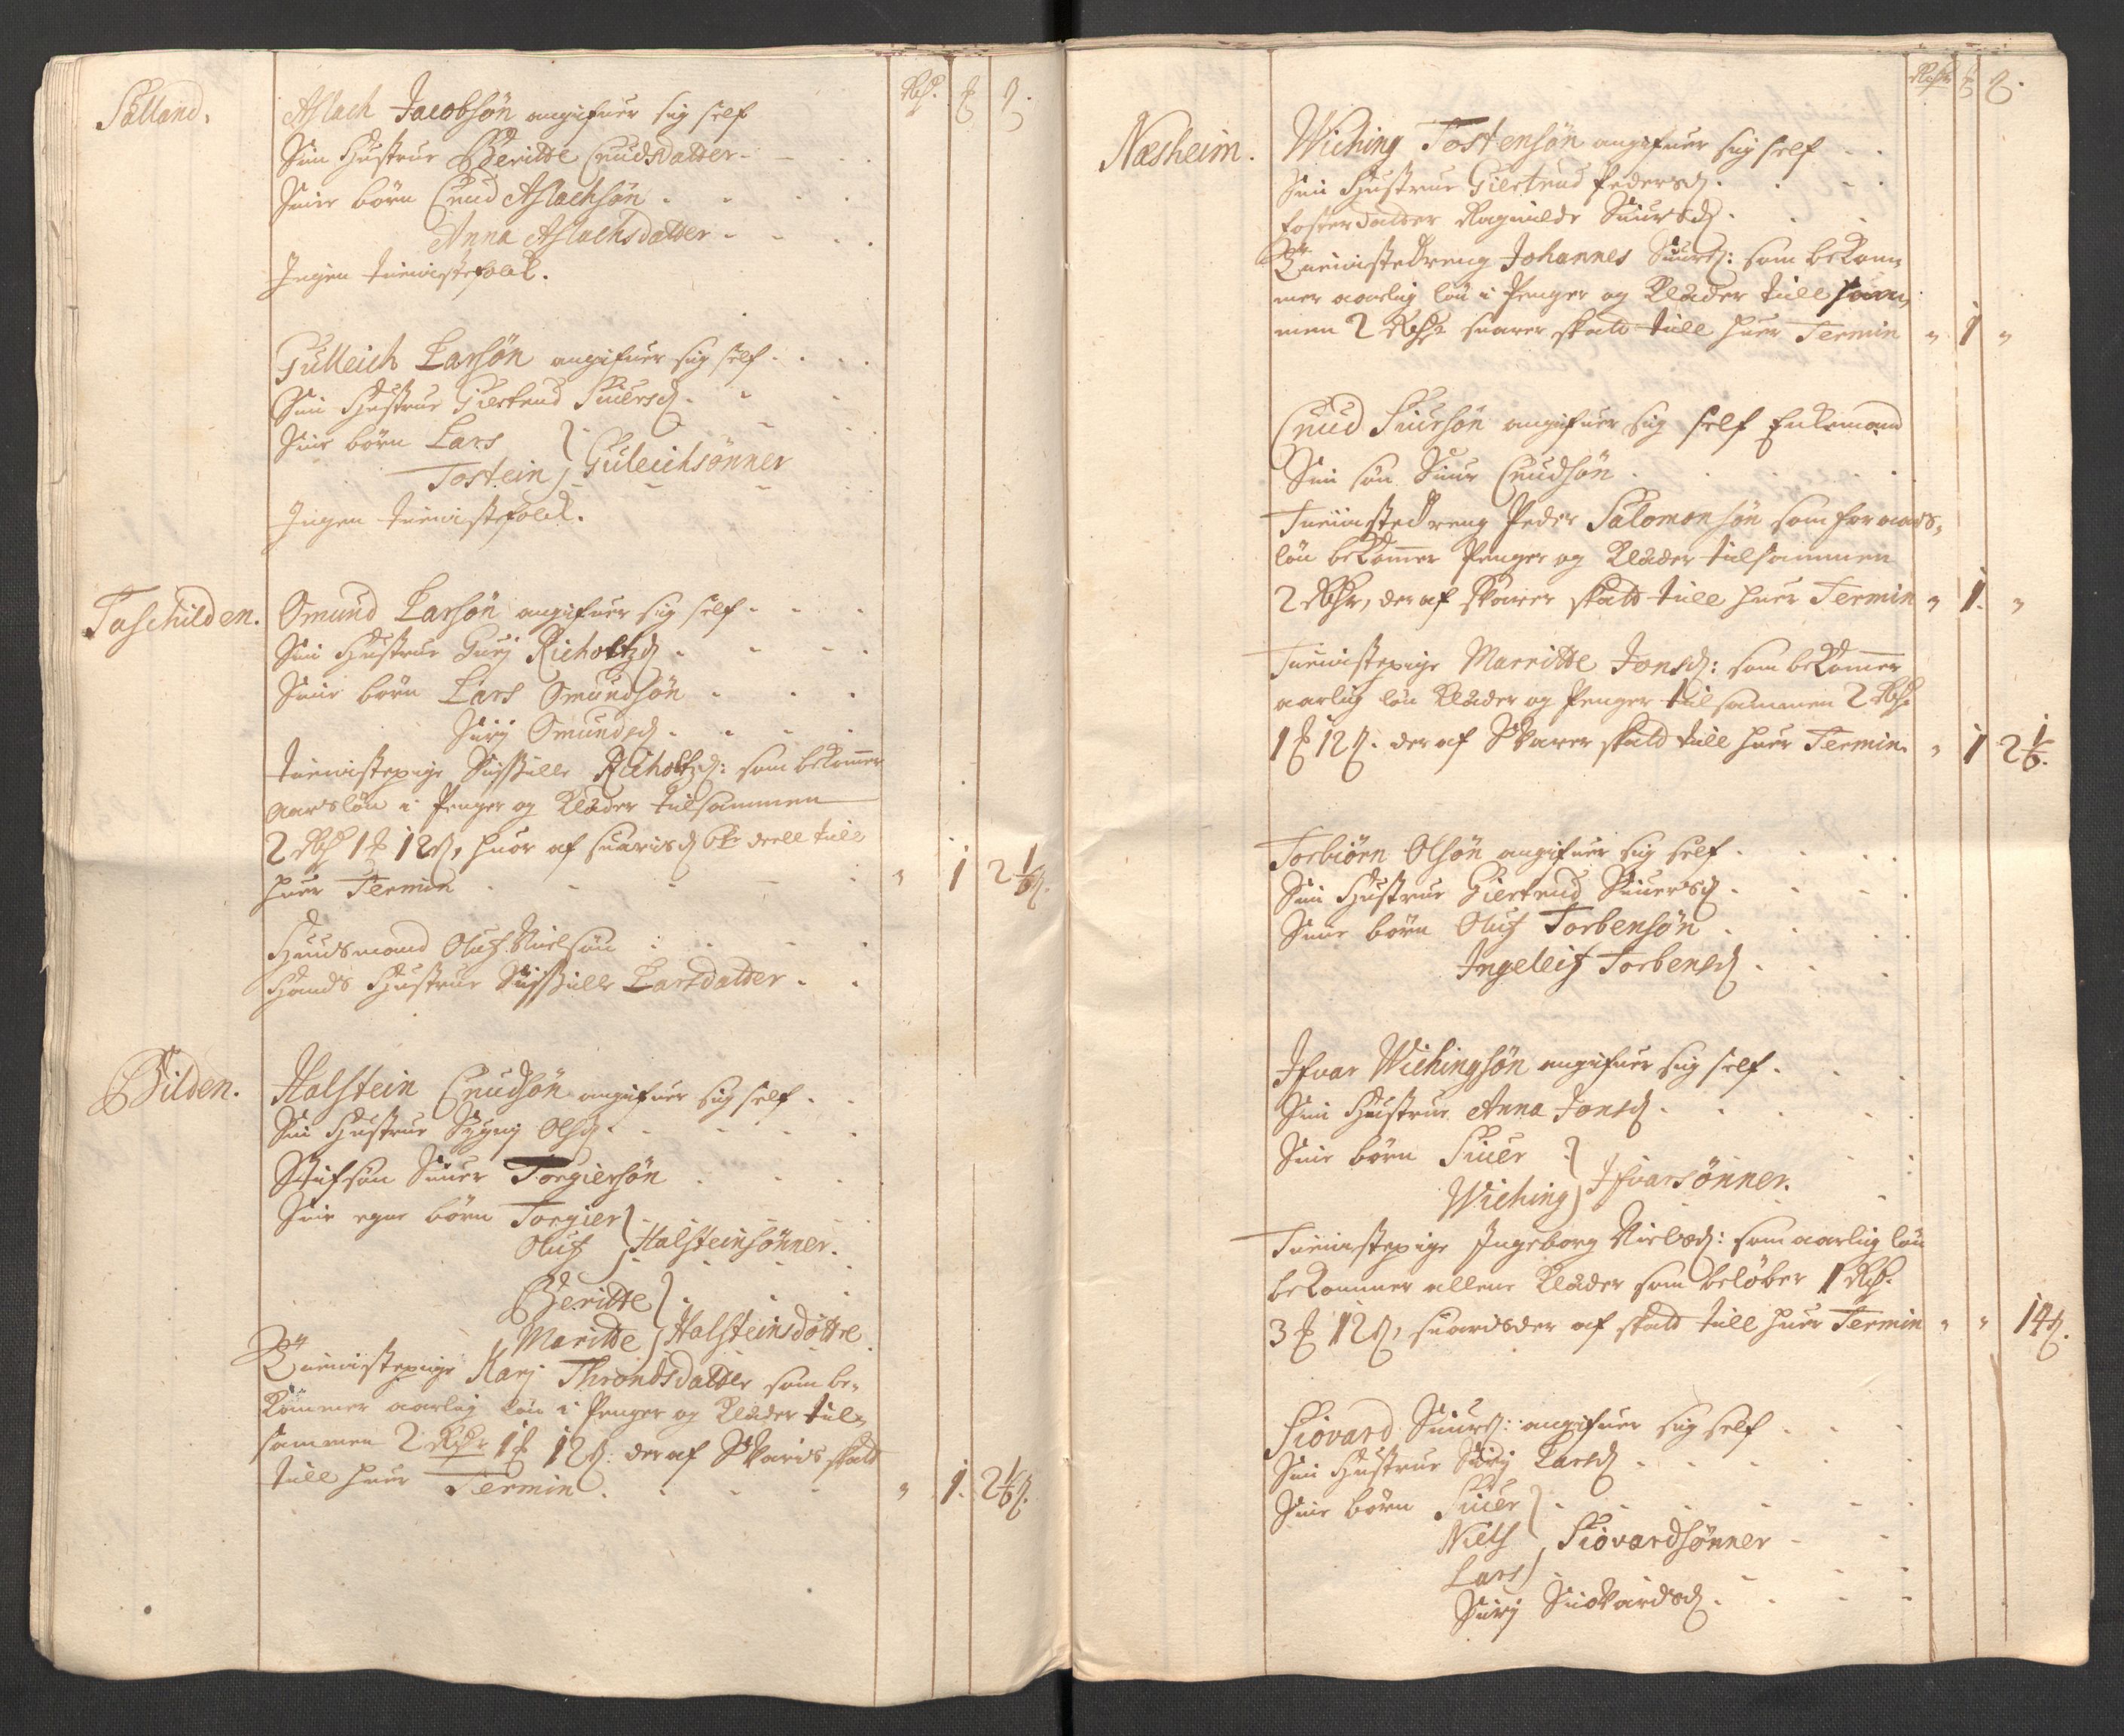 Rdr. ₰ ẞ.
Sælland. Aslach Jacobsøn angifuer sig self
Sin Hustrue Beritte Cnudsdatter
Sine børn Cnud Aslachsøn
Anna Aslachsdatter
Ingen tienistefolck.
Gulleich Larsøn angifuer sig self
Sin Hustrue Giertrud Siuersd.
Sine børn Lars
Tostein } Guleichsønner
Ingen tienistefolck.
Taschilden. Omund Larsøn angifuer sig self
Sin Hustrue Gurj Richoltzd.
Sine børn Lars Omundsøn
Surj Omundsd.
tienistepige Sissille Richoltzd: som bekommer
aarsløn i Penger og Klæder tilsammen
2 Rdr 1 ₰ 12 ẞ, huor af suaris 6te deell till
huer Termin " 1 2 1/6 ẞ.
Huusmand Oluf Nielsøn
Hands Hustrue Sissille Larsdatter
Bilden. Halstein Cnudsøn angifuer sig self
Sin Hustrue Sygnj Olsd.
Stifsøn Siuer Torgiersøn
Sine egne børn Torgier
Oluf } Halsteinsønner.
Beritte
Maritte } Halsteinsdøttre
Tienistepige Karj Throndsdatter som be-
kommer aarlig løn i Penger og Klæder til-
sammen 2 Rdr 1 ₰ 12 ẞ: der af Svaris skatt
till huer Termin " 1. 2 1/6 ẞ.
Rdr ₰ ẞ.
Næsheim. Wiching Tostensøn angifuer sig self
Sin Hustrue Giertrud Pedersd.
fosterdatter Ragnilde Siursd.
Tienistedreng Johannes Siurs: som bekom-
mer aarlig løn i Penger og Klæder till sam-
men 2 Rdr suarer skatt till huer Termin " 1 "
Cnud Siursøn angifuer sig self Enkemand
Sin søn Siur Cnudsøn
Tienistedreng Peder Salomonsøn som for aars-
løn bekommer Penger og Klæder tilsammen
2 Rdr, der af Svarer skatt till huer Termin " 1. "
Tienistepige Marritte Jonsd: som bekommer
aarlig løn Klæder og Penger tilsammen 2 Rdr
1 ₰ 12 ẞ. der af Svarer skatt till huer Termin " 1 2 1/6.
Torbiørn Olsøn angifuer sig self
Sin Hustrue Giertrud Siuersd.
Sine børn Oluf Torbensøn
Ingeleif Torbensd.
Ifvar Wichingsøn angifuer sig self
Sin Hustrue Anna Jonsd.
Sine børn Siuer
Wiching } Ifvarsønner.
Tienistepige Ingeborg Nielsd: som aarlig løn
bekommer allene Klæder som beløber 1 Rdr.
3 ₰ 12 ẞ, suaris der af skatt till huer Termin " " 14 ẞ.
Siovard Siurs: angifuer sig self
Sin Hustrue Surj Larsd.
Sine børn Siuer
Niels } Siovardsønner
Lars
Surj Siovardsd.